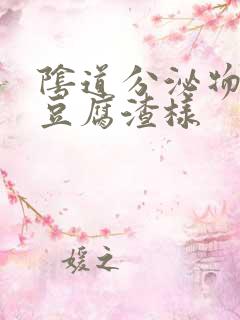 陰道分泌物
豆腐渣樣
媛之